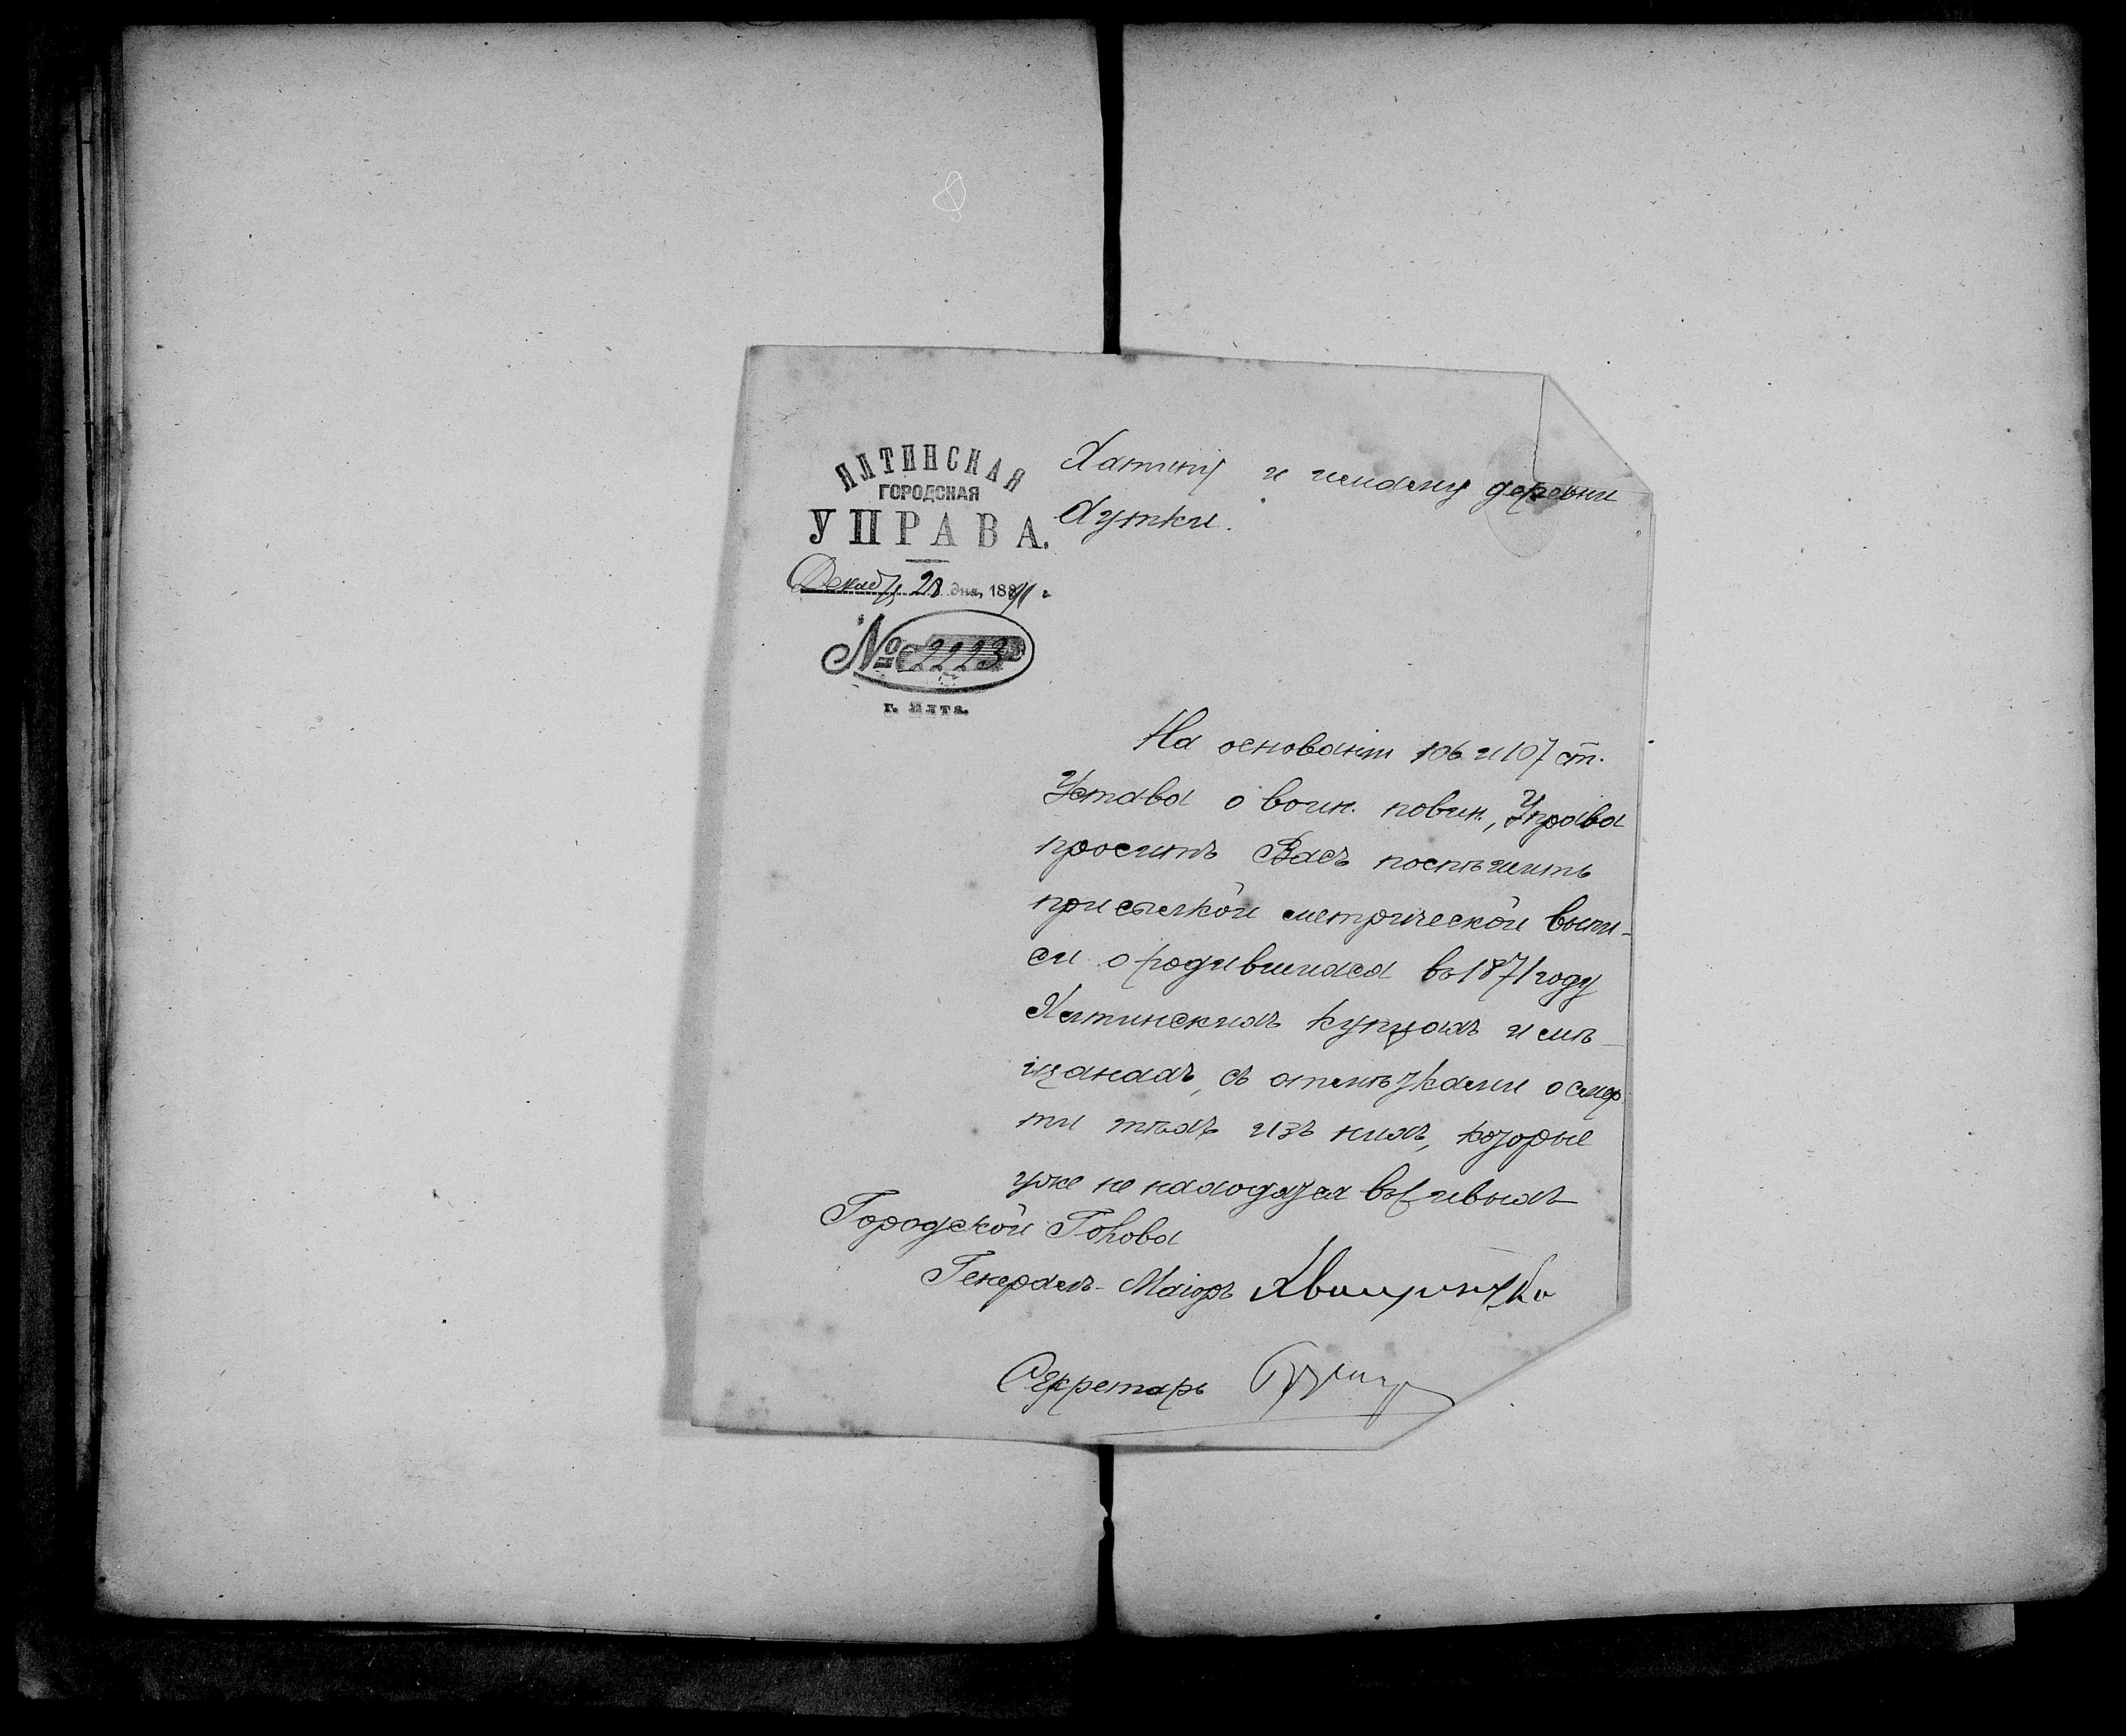 ЯЛТИНСКАЯ
ГОРОДСКАЯ
УПРАВА.
Декабр 28 дня, 1891 г
№ 2223
г. Ялта.
Хатипу и имаму деревни
Аутки.
На основаніи 106 и 107 ст.
Устава о воин. повин., Управа
проситъ Васъ поспѣшить
присылкой метрической выпи-
си о родившихся въ 1871 году
Ялтинскихъ купцахъ и мѣ-
щанахъ, съ отмѣтками о смер
ти тѣхъ изъ нихъ, которые
уже не находятся въ живыхъ
Городской Голова
Генералъ-Маіоръ
Секретарь